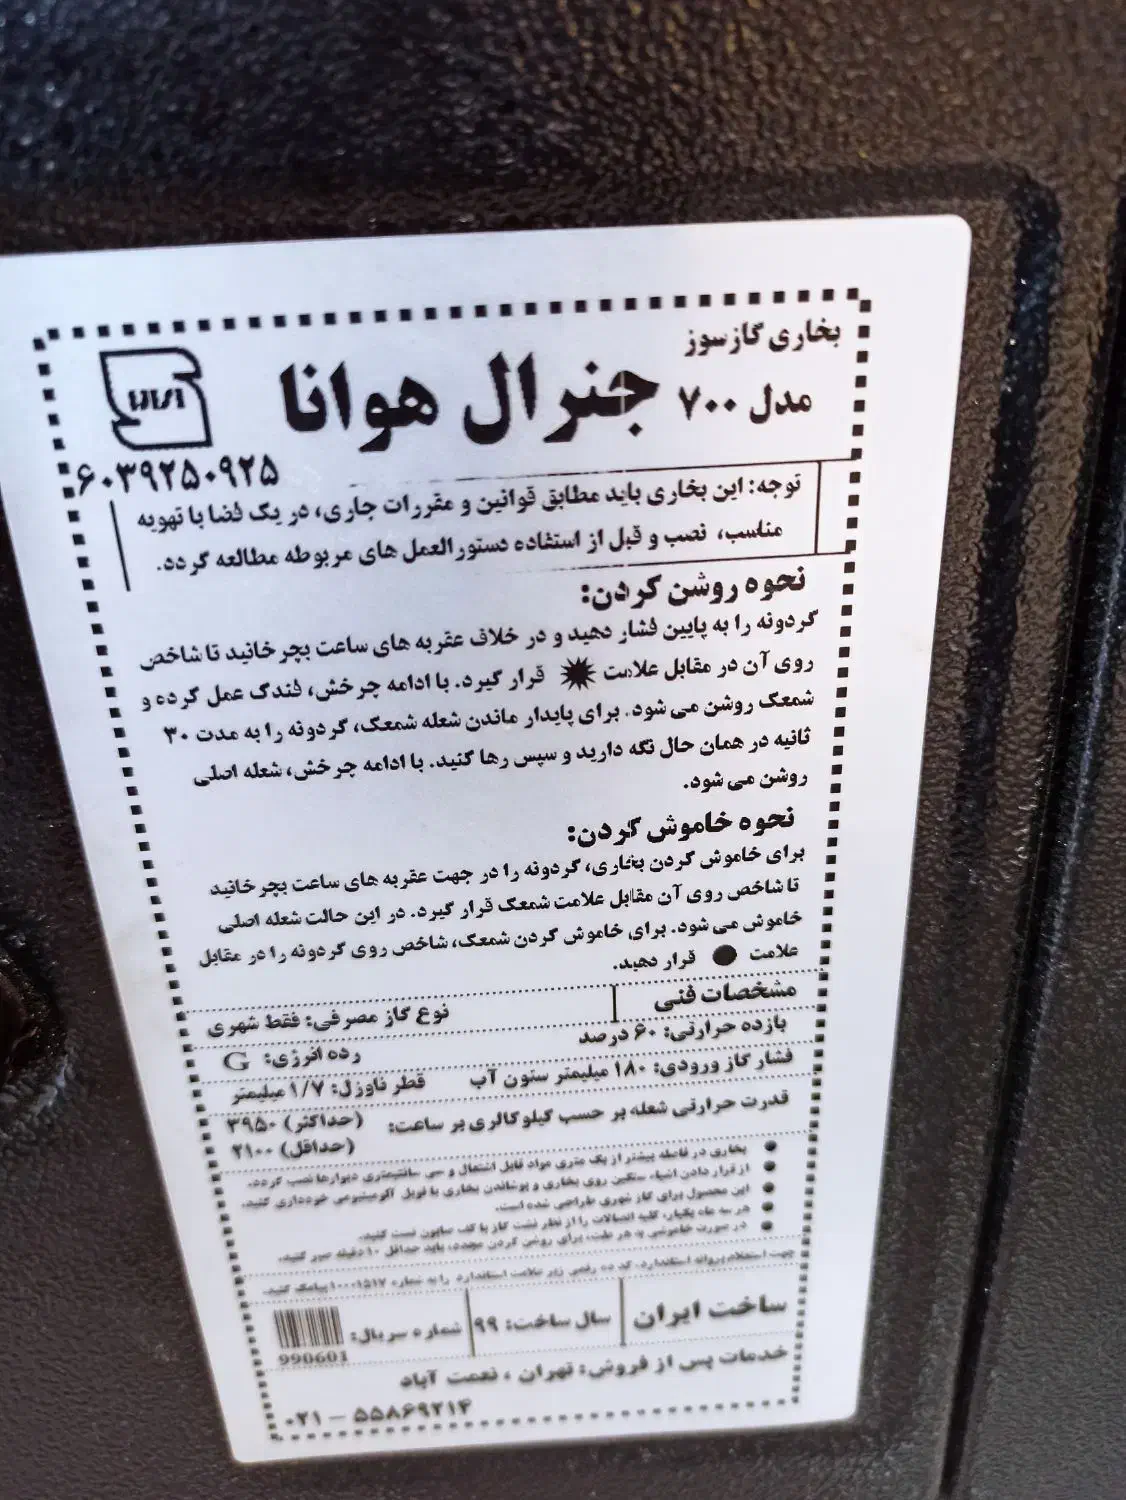 بخاری گازسوز
مدل ۷۰۰ جنرال هوانا
۶۰۳۹۲۵۰۹۲۵
توجه: این بخاری باید مطابق قوانین و مقررات جاری، در یک فضا با تهویه
مناسب، نصب و قبل از استفاده دستورالعمل های مربوطه مطالعه گردد.
نحوه روشن کردن:
گردونه را به پایین فشار دهید و در خلاف عقربه های ساعت بچرخانید تا شاخص
روی آن در مقابل علامت قرار گیرد. با ادامه چرخش، فندک عمل کرده و
شمعک روشن می شود. برای پایدار ماندن شعله شمعک، گردونه را به مدت ۳۰
ثانیه در همان حال نگه دارید و سپس رها کنید. با ادامه چرخش، شعله اصلی
روشن می شود.
نحوه خاموش کردن:
برای خاموش کردن بخاری، گردونه را در جهت عقربه های ساعت بچرخانید
تا شاخص روی آن مقابل علامت شمعک قرار گیرد. در این حالت شعله اصلی
خاموش می شود. برای خاموش کردن شمعک، شاخص روی گردونه را در مقابل
علامت ● قرار دهید.
مشخصات فنی | نوع گاز مصرفی: فقط شهری
بازده حرارتی: ۶۰ درصد رده انرژی: G
فشار گاز ورودی: ۱۸۰ میلیمتر ستون آب قطر نازل: ۱/۷ میلیمتر
قدرت حرارتی شعله بر حسب کیلوکالری بر ساعت: (حداکثر) ۳۹۵۰
(حداقل) ۲۱۰۰
● بخاری در فاصله بیشتر از یک متری مواد قابل اشتعال و سی سانتیمتری دیوارها نصب گردد.
● از قرار دادن اشیاء سنگین روی بخاری و پوشاندن بخاری با فویل آلومینیومی خودداری کنید.
● این محصول برای گاز شهری طراحی شده است.
● هر سه ماه یکبار، کلیه اتصالات را از نظر نشت گاز با کف صابون تست کنید.
● در صورت خاموشی به هر علت، برای روشن کردن مجدد، باید حداقل ۱۰ دقیقه صبر کنید.
جهت استعلام پروانه استاندارد، کد ده رقمی زیر علامت استاندارد را به شماره ۱۰۰۰۱۵۱۷ پیامک کنید.
ساخت ایران | سال ساخت: ۹۹ | شماره سریال:
990601
خدمات پس از فروش: تهران ، نعمت آباد
۰۲۱ – ۵۵۸۶۹۲۱۴